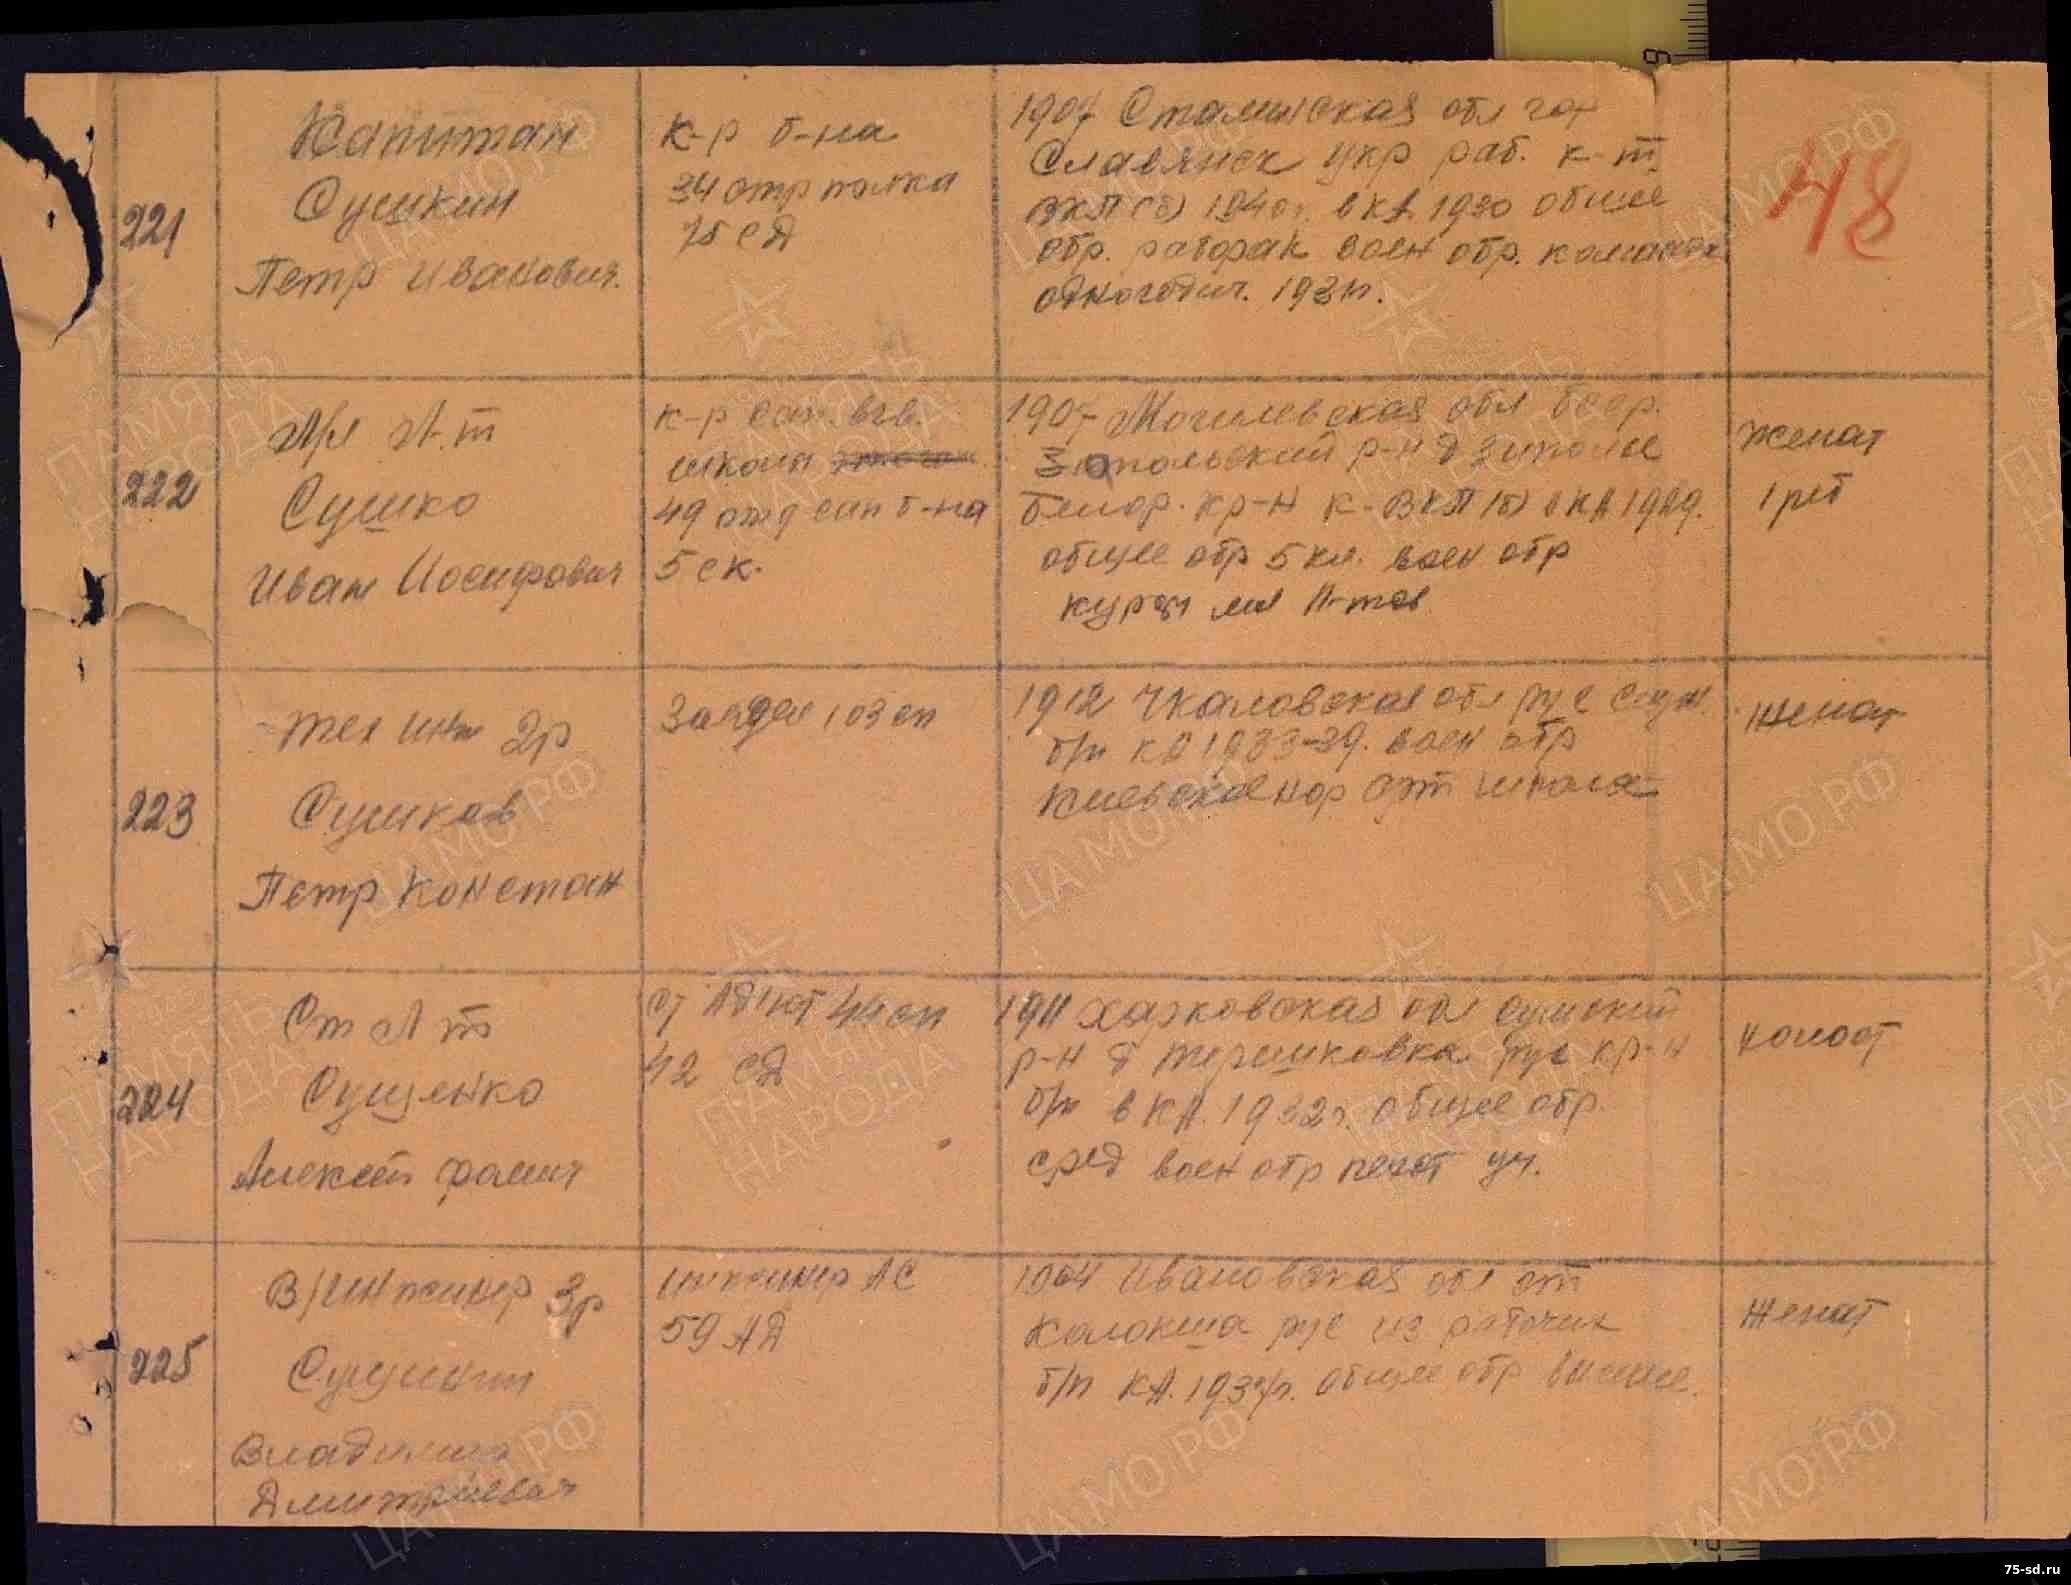 221
Капитан
Сушкин
Петр Иванович.
к-р б-на
34 отр полка
75 сд
1907 Сталинская обл гор
Славянск укр раб. к-т
ВКП(б) 1940г. в КА 1930 общее
обр. рабфак воен обр. команда
одногодич. 1931г.
48
222
Мл Л-т
Сушко
Иван Иосифович
к-р сап. взв.
школы
49 отд сап б-на
5 ск.
1907 Могилевская обл бсср.
р-н д
белор. кр-н к-ВКП(б) КА 1929.
общее обр 5 кл. воен обр
курсы мл л-тов
Женат
1 реб
223
тех инт 2р
Сушков
Петр Констан
Завдел 103 сп
1912 Чкаловская обл рус служ.
б/п КА 1933-39. воен обр
Киевская арт школа
Женат
224
Ст Л-т
Сущенко
Алексей Фомич
Ст Ад'ют 44 сп
42 сд
1911 Харковская обл Сумский
р-н д Терешковка рус кр-н
б/п в КА. 1932г. общее обр.
сред воен обр пехот уч.
Холост
225
В/Инженер 3р
Сушкин
Владимир
Дмитриевич
Инженер АС
59 АД
1904 Ивановская обл ст
Колокша рус из рабочих
б/п КА. 1937г. общее обр высшее.
Женат
ЦА МО РФ
ПАМЯТЬ
НАРОДА
75-sd.ru